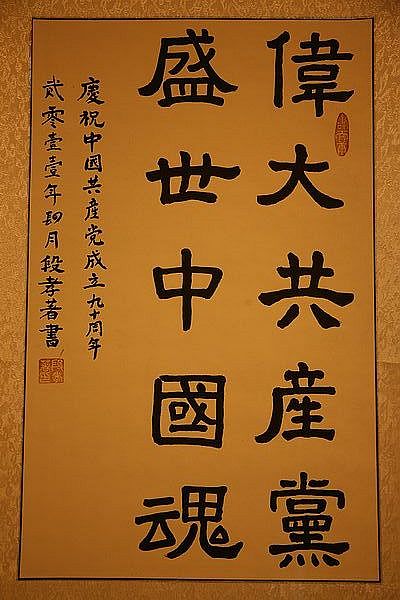 偉大共産黨
盛世中國魂
慶祝中国共産党成立九十周年
貳零壹壹年四月段孝著書